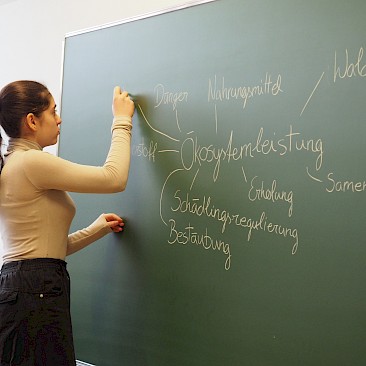 Dünger
Nahrungsmittel
Wal
Ökosystemleistung
Erholung
Samen
Schädlingsregulierung
Bestäubung